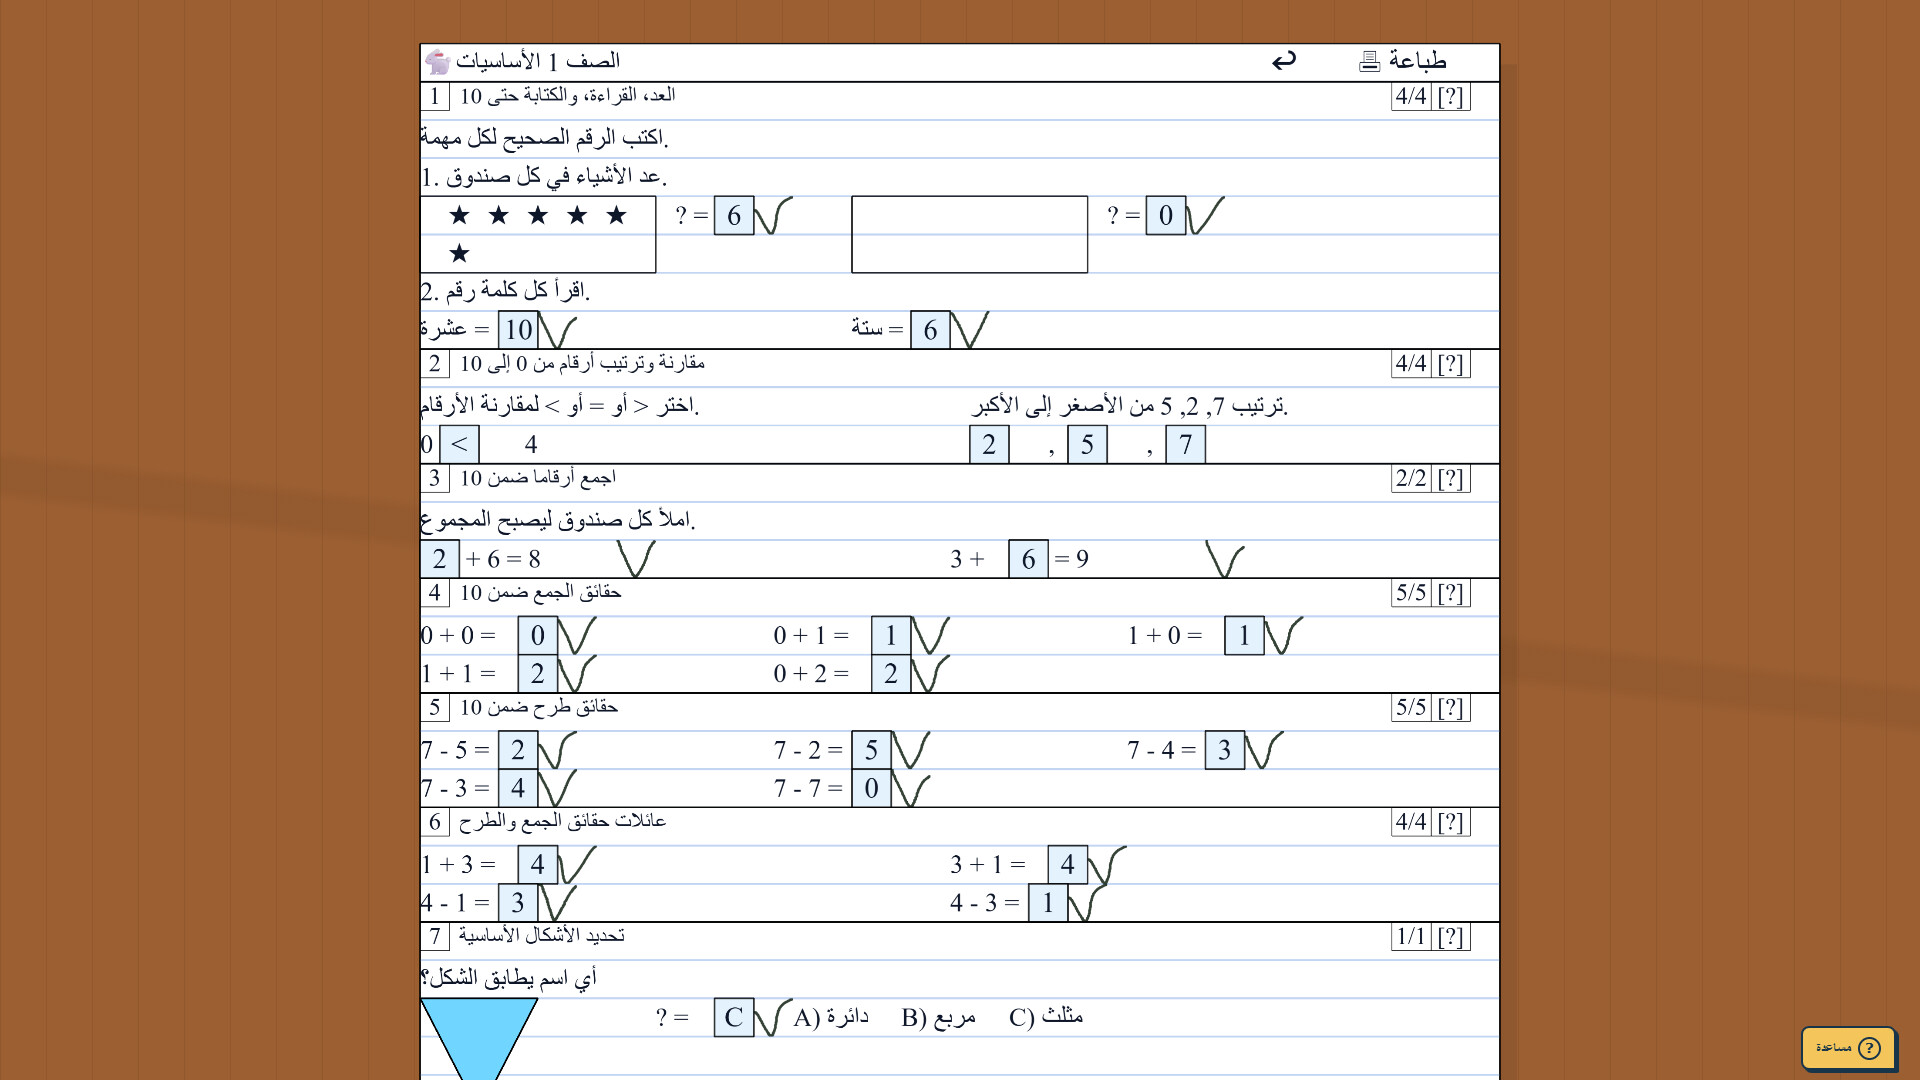 الصف 1 الأساسيات طباعة
1 العد، القراءة، والكتابة حتى 10 4/4 [?]
اكتب الرقم الصحيح لكل مهمة.
1. عد الأشياء في كل صندوق.
? = 6 ? = 0
2. اقرأ كل كلمة رقم.
عشرة = 10 ستة = 6
2 مقارنة وترتيب أرقام من 0 إلى 10 4/4 [?]
اختر > أو = أو < لمقارنة الأرقام. ترتيب 7, 2, 5 من الأصغر إلى الأكبر.
0 < 4 2 , 5 , 7
3 اجمع أرقاما ضمن 10 2/2 [?]
املأ كل صندوق ليصبح المجموع.
2 + 6 = 8 3 + 6 = 9
4 حقائق الجمع ضمن 10 5/5 [?]
0 + 0 = 0 0 + 1 = 1 1 + 0 = 1
1 + 1 = 2 0 + 2 = 2
5 حقائق طرح ضمن 10 5/5 [?]
7 - 5 = 2 7 - 2 = 5 7 - 4 = 3
7 - 3 = 4 7 - 7 = 0
6 عائلات حقائق الجمع والطرح 4/4 [?]
1 + 3 = 4 3 + 1 = 4
4 - 1 = 3 4 - 3 = 1
7 تحديد الأشكال الأساسية 1/1 [?]
أي اسم يطابق الشكل؟
? = C A) دائرة B) مربع C) مثلث
مساعدة ?